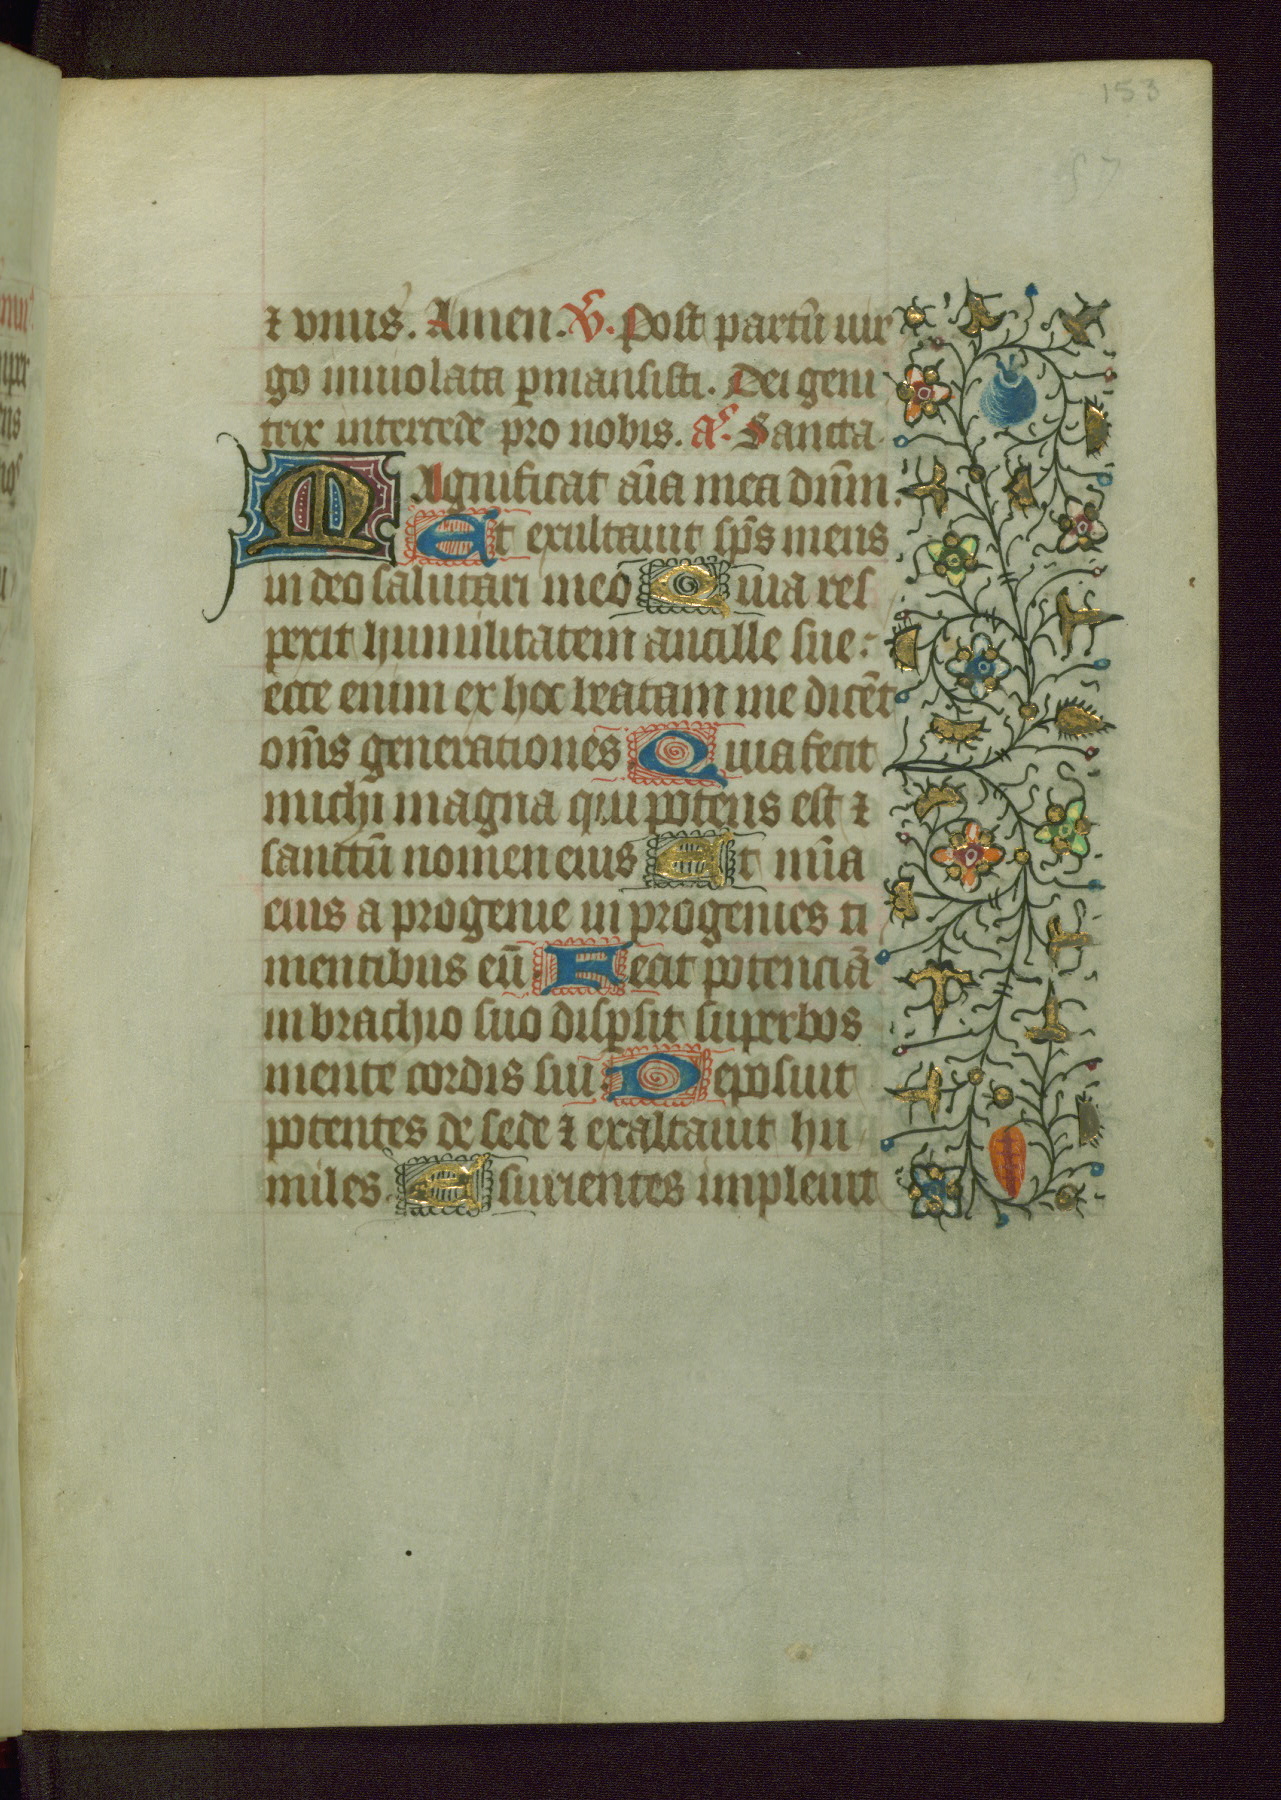 153
57
⁊ vnus. Amen. V̄. Post partū uir
go inuiolata ꝑmansisti. Dei geni
trix intercede pro nobis. a͞. Sancta
MAgnificat aīa mea dn̄m.
Et exultauit sp̄s meus
in deo salutari meo Quia res
pexit humilitatem ancille sue:
ecce enim ex hoc beatam me dicēt
om̄s generationes Quia fecit
michi magna qui potens est ⁊
sanctū nomen eius Et mīa
eius a progenie in progenies ti
mentibus eū Fecit potenciā
in brachio suo dispsit superbos
mente cordis sui Deposuit
potentes de sede ⁊ exaltauit hu
miles Esurientes impleuit